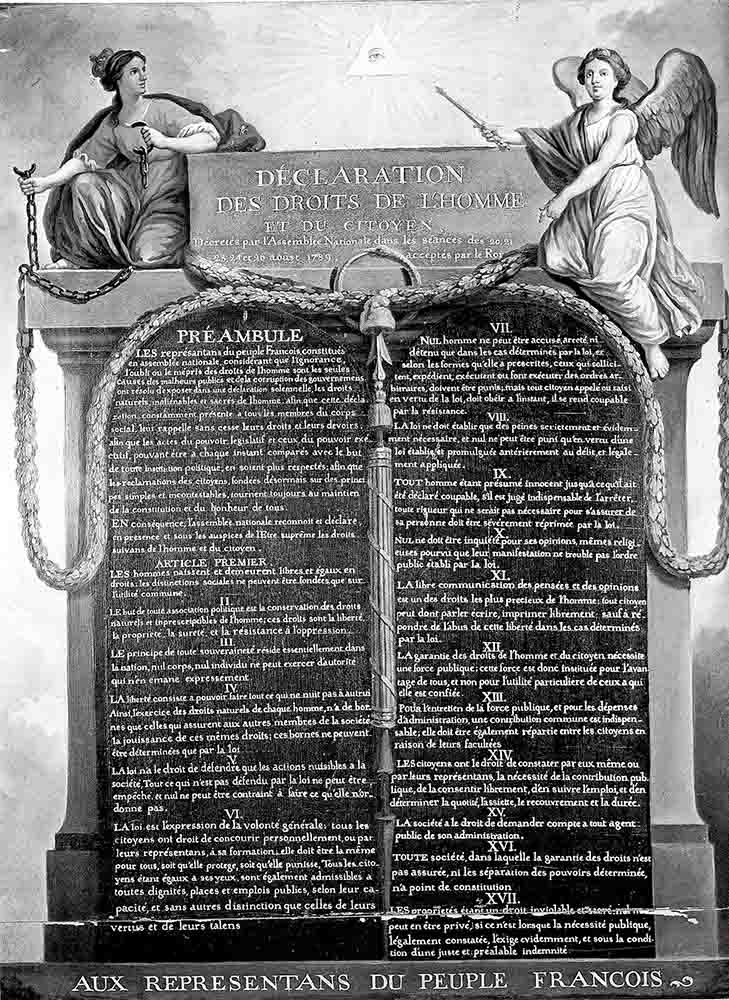 DÉCLARATION
DES DROITS DE L'HOMME
ET DU CITOYEN,
Décretés par l'Assemblée Nationale dans les séances des 20, 21
23, 24 et 26 aoust 1789, acceptés par le Roi
PRÉAMBULE
LES représantans du peuple Francois, constitués
en assemblée nationale, considérant que l'ignorance,
l'oubli ou le mépris des droits de l'homme sont les seules
causes des malheurs publics et de la corruption des gouvernemens
ont résolu d'exposer dans une déclaration solemnelle, les droits
naturels, inaliénables et sacrés de l'homme: afin que cette décla
ration, constamment présente a tous les membres du corps
social, leur rappelle sans cesse leurs droits et leurs devoirs:
afin que les actes du pouvoir législatif et ceux du pouvoir exé
cutif, pouvant être a chaque instant comparés avec le but
de toute institution politique, en soient plus respectés; afin que
les reclamations des citoyens, fondées désormais sur des princi
pes simples et incontestables, tournent toujours au maintien
de la constitution et du bonheur de tous.
EN conséquence, l'assemblée nationale reconnoit et déclare,
en presence et sous les auspices de l'Etre suprême les droits
suivans de l'homme et du citoyen.
ARTICLE PREMIER
LES hommes naissent et demeurent libres et égaux en
droits; les distinctions sociales ne peuvent être fondées que sur
l'utilité commune.
II.
LE but de toute association politique est la conservation des droits
naturels et inprescriptibles de l'homme; ces droits sont la liberté,
la proprieté, la sureté, et la résistance à l'oppression.
III.
LE principe de toute souveraineté réside essentiellement dans
la nation, nul corps, nul individu ne peut exercer d'autorité
qui n'en emane expressement.
IV.
LA liberté consiste a pouvoir faire tout ce qui ne nuit pas à autrui
Ainsi, l'exercice des droits naturels de chaque homme, n'a de bor
nes que celles qui assurent aux autres membres de la société
la jouissance de ces mêmes droits; ces bornes ne peuvent
être déterminées que par la loi
V.
LA loi n'a le droit de défendre que les actions nuisibles a la
société. Tout ce qui n'est pas défendu par la loi ne peut être
empêché, et nul ne peut être contraint à faire ce qu'elle n'or-
donne pas.
VI.
LA loi est l'expression de la volonté générale; tous les
citoyens ont droit de concourir personnellement, ou par
leurs représentans, à sa formation; elle doit être la même
pour tous, soit qu'elle protege, soit qu'elle punisse, Tous les cito-
yens étant égaux à ses yeux, sont également admissibles à
toutes dignités, places et emplois publics, selon leur ca-
pacité, et sans autres distinction que celles de leurs
vertus et de leurs talens
VII.
NUL homme ne peut être accusé, arreté ni
détenu que dans les cas déterminés par la loi, et
selon les formes qu'elle a prescrites, ceux qui sollici-
tent, expédient, exécutent ou font exécuter des ordres ar-
bitraires, doivent être punis; mais tout citoyen appelé ou saisi
en vertu de la loi, doit obéir a l'instant, il se rend coupable
par la résistance.
VIII.
LA loi ne doit établir que des peines strictement et évidem-
ment nécessaire, et nul ne peut être puni qu'en vertu d'une
loi établie, et promulguée antérierement au délit, et légale-
ment appliquée.
IX.
TOUT homme étant présumé innocent jusqu'a ce qu'il ait
été déclaré coupable, s'il est jugé indispensable de l'arrêter,
toute rigueur qui ne serait pas nécessaire pour s'assurer de
sa personne doit être sévèrement réprimée par la loi.
X.
NUL ne doit être inquiété pour ses opinions, mêmes religi
euses pourvu que leur manifestation ne trouble pas l'ordre
public établi par la loi.
XI.
LA libre communication des pensées et des opinions
est un des droits les plus precieux de l'homme: tout citoyen
peut donc parler écrire, imprimer librement: sauf a ré-
pondre de l'abus de cette liberté dans les cas déterminés
par la loi.
XII.
LA garantie des droits de l'homme et du citoyen nécessite
une force publique: cette force est donc instituée pour l'avan
tage de tous, et non pour l'utilité particuliere de ceux a qui
elle est confiée.
XIII
POUR l'entretien de la force publique, et pour les dépenses
d'administration, une contribution commune est indispen-
sable; elle doit être également répartie entre les citoyens en
raison de leurs facultées
XIV.
LES citoyens ont le droit de constater par eux même ou
par leurs représentans, la nécessité de la contribution pub-
lique, de la consentir librement, d'en suivre l'emploi, et d'en
déterminer la quotité, l'assiette, le recouvrement et la durée.
XV.
LA société a le droit de demander compte a tout agent
public de son administration.
XVI.
TOUTE société, dans laquelle la garantie des droits n'est
pas assurée, ni les séparation des pouvoirs déterminée,
n'a point de constitution
XVII.
LES proprietés étant un droit inviolable et sacré, nul ne
peut en être privé, si ce n'est lorsque la nécessité publique,
légalement constatée, l'exige evidemment, et sous la condi
tion d'une juste et préalable indemnité.
AUX REPRESENTANS DU PEUPLE FRANCOIS